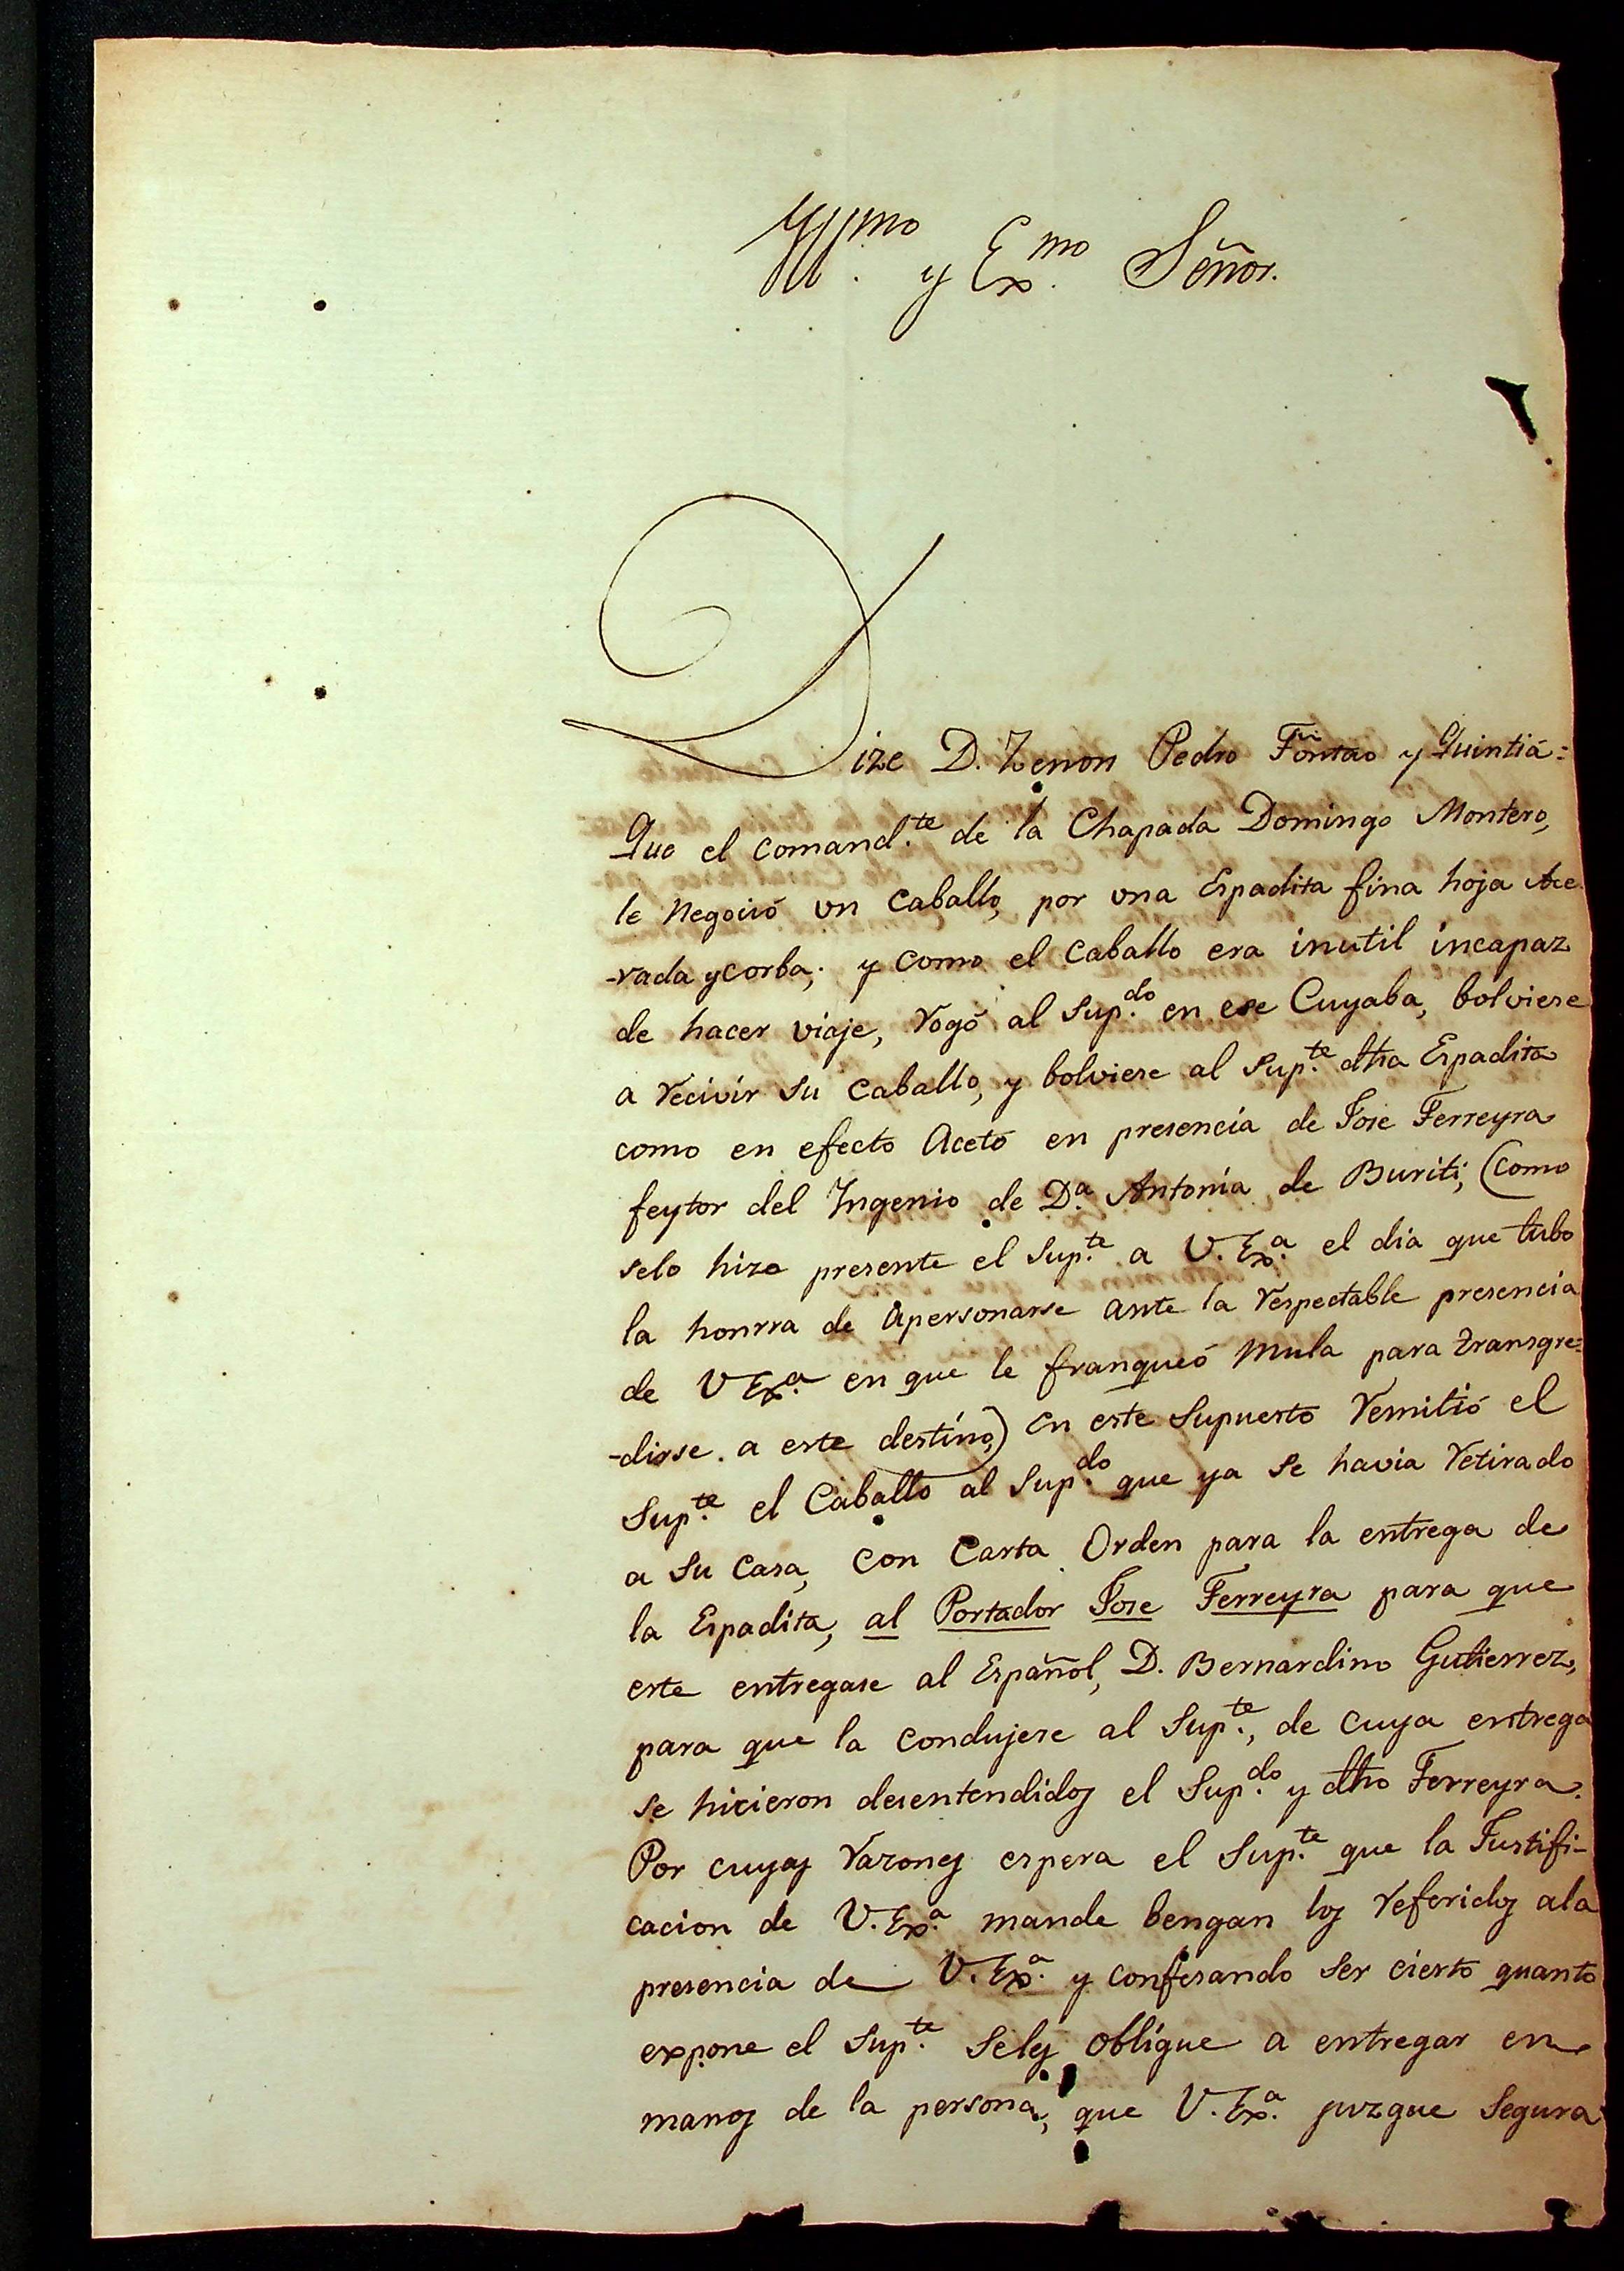 Yll.mo y Ex.mo Señor.
Dize D. Zenon Pedro Fontao y Quintiá:
Que el comand.te de la Chapada Domingo Montero,
le negoció un caballo, por una Espadita fina hoja Ace
-rada y corba; y como el caballo era inutil incapaz
de hacer viaje, rogó al Sup.do en ese Cuyaba, bolviese
a recivir su caballo, y bolviese al Sup.te dha Espadita
como en efecto acetó en presencia de Jose Ferreyra
feytor del Ingenio de D.a Antonia de Buriti; (como
selo hizo presente el Sup.te a V. Ex.a el dia que tubo
la honrra de apersonarse ante la respectable presencia
de V Ex.a en que le franqueó mula para transgre=
-dirse a este destino,) en este supuesto remitió el
Sup.te el Caballo al Sup.do que ya se havia retirado
a su casa, con Carta Orden para la entrega de
la Espadita, al Portador Jose Ferreyra para que
este entregase al Español, D. Bernardino Gutierrez,
para que la condujese al Sup.te, de cuya entrega
se hicieron desentendidos el Sup.do y dho Ferreyra.
Por cuyas razones espera el Sup.te que la Justifi-
cacion de V. Ex.a mande bengan los referidos ala
presencia de V. Ex.a y confesando ser cierto quanto
expone el Sup.te seles obligue a entregar en
manos de la persona, que V. Ex.a juzgue segura